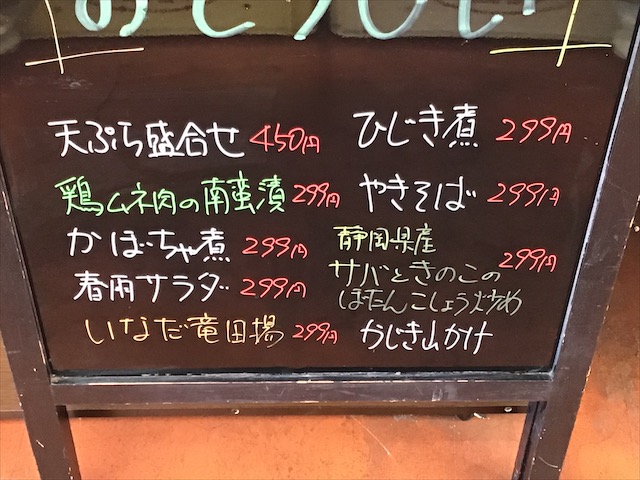 天ぷら盛合せ 450円
鶏ムネ肉の南蛮漬 299円
かぼちゃ煮 299円
春雨サラダ 299円
いなだ竜田場 299円
ひじき煮 299円
やきそば 299円
静岡県産
サバときのこの 299円
ぼたんこしょう炒め
かじき山かけ